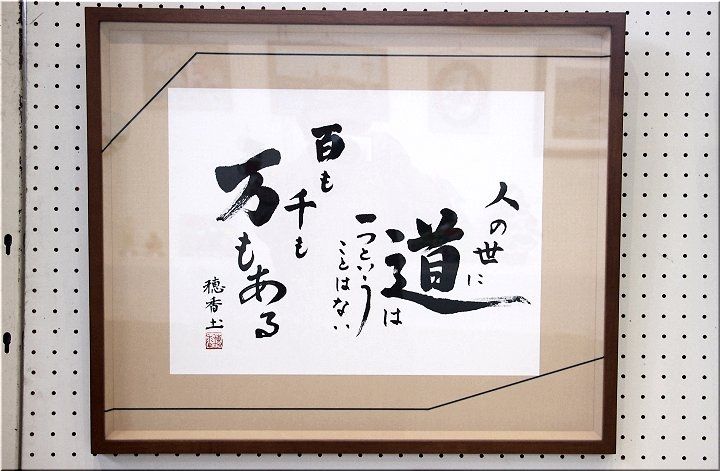 人の世に
道は
一つという
ことはない
百も
千も
万もある
穂香